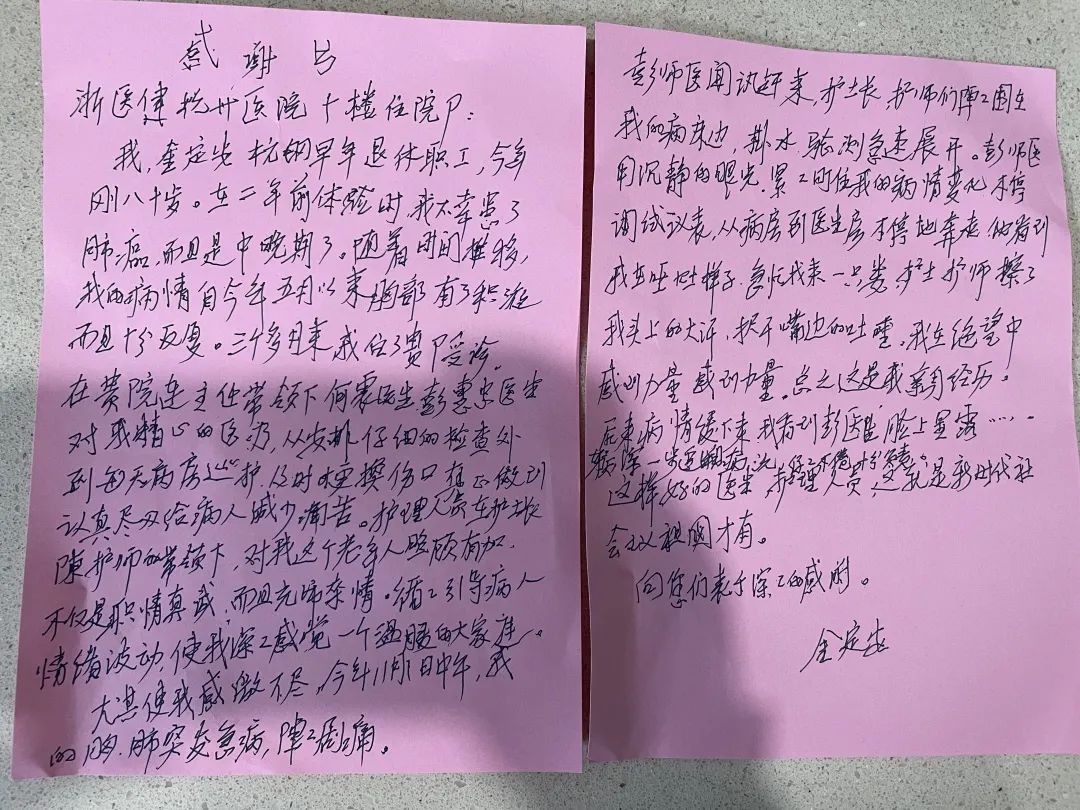 感谢书
浙医健杭州医院十楼住院户:
我,金定发 杭钢早年退休职工,今年
刚八十岁。在二年前体验时,我不幸患了
肺癌,而且是中晚期了。随着时间推移,
我的病情自今年五月以来胸部有了积液
而且十分反复。三个多月来我住了贵户受诊。
在黄院连主任带领下何震医生彭惠忠医生
对我精心的医疗,从安排仔细的检查外
到每天病房巡护,及时换伤口 做到
认真尽双给病人减少痛苦。护理人员在护士长
陈护师的带领下,对我这个老年人照顾有加,
不仅是职情真诚,而且充满亲情。循工引导病人
情绪波动,使我深工感觉一个温暖的大家庭。
尤其使我感激不尽,今年11月 日中午,我
的胸、肺突发急病,阵工剧痛。
彭师医闻讯赶来,护士长 护师们阵工围在
我的病床边,抽水 验测急速展开。彭师医
用沉静的眼光,紧工盯住我的病情变化 不停
调试议表,从病房到医生房不停地奔走 他看到
我在呕吐样子,急忙找来一只娄 护士护师擦了
我头上的大汗,拭干嘴边的吐唾。我在绝望中
感到力量 感到力量。总之这是我亲身经历。
后来病情缓下来 我看到彭医生脸上显露……
这样好的医生 护理人员,这就是新时代社
会议祖国才有。
向您们表于深工的感谢。
金定发